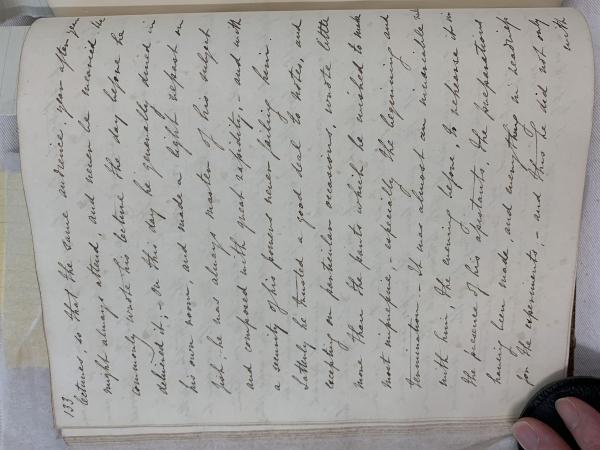 133
lectures, so that the same audience year after year
might always attend, and never be wearied. He
commonly wrote his lecture the day before he
delivered it; - on this day he generally dined in
his own room, and made a light repast on
fish. he was always master of his subject
and composed with great rapidity, - and with
a security of his powers never failing him.
Latterly he trusted a good deal to notes, and
excepting on particular occasions, wrote little
more than the parts which he wished to make
most impressive, - especially the beginning and
termination. - It was almost an invariable rule
with him, the evening before, to rehearse it in
the presence of his assistants, the preparations
having been made, and everything in readiness
for the experiments; - and this he did not only
with